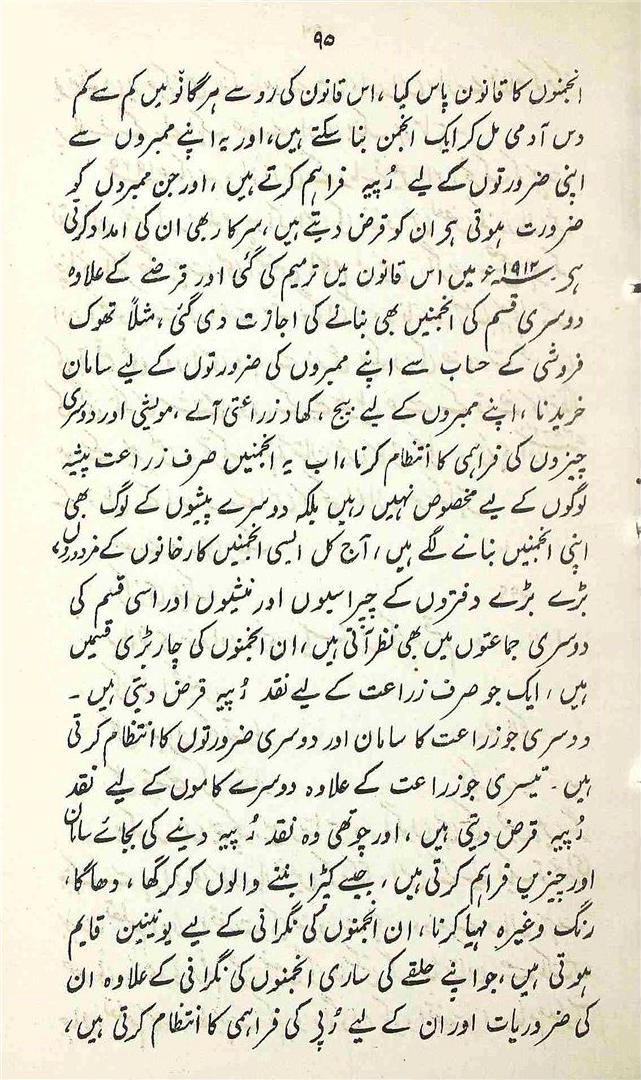 ۹۵
انجمنوں کا قانون پاس کیا ، اس قانون کی رو سے ہر گانؤ میں کم سے کم
دس آدمی مل کر ایک انجمن بنا سکتے ہیں، اور یہ اپنے ممبروں سے
اپنی ضرورتوں کے لیے رُپیہ فراہم کرتے ہیں ، اور جن ممبروں کو
ضرورت ہوتی ہو ان کو قرض دیتے ہیں، سرکار بھی ان کی امداد کرتی
ہو۔ ۱۹۱۲ء میں اس قانون میں ترمیم کی گئی اور قرضے کے علاوہ
دوسری قسم کی انجمنیں بھی بنانے کی اجازت دی گئی ، مثلاً تھوک
فروشی کے حساب سے اپنے ممبروں کی ضرورتوں کے لیے سامان
خریدنا ، اپنے ممبروں کے لیے بیج ، کھاد زراعتی آلے ، مویشی اور دوسری
چیزوں کی فراہمی کا انتظام کرنا ، اب یہ انجمنیں صرف زراعت پیشہ
لوگوں کے لیے مخصوص نہیں رہیں بلکہ دوسرے پیشوں کے لوگ بھی
اپنی انجمنیں بنانے لگے ہیں ، آج کل ایسی انجمنیں کارخانوں کے مزدوروں،
بڑے بڑے دفتروں کے چپراسیوں اور منشیوں اور اسی قسم کی
دوسری جماعتوں میں بھی نظر آتی ہیں ، ان انجمنوں کی چار بڑی قسمیں
ہیں ، ایک جو صرف زراعت کے لیے نقد رُپیہ قرض دیتی ہیں ۔
دوسری جو زراعت کا سامان اور دوسری ضرورتوں کا انتظام کرتی
ہیں ۔ تیسری جو زراعت کے علاوہ دوسرے کاموں کے لیے نقد
رُپیہ قرض دیتی ہیں ، اور چوتھی وہ نقد رُپیہ دینے کی بجائے سامان
اور چیزیں فراہم کرتی ہیں ، جیسے کپڑا بننے والوں کو کرگھا ، دھاگا،
رنگ وغیرہ مہیا کرنا ، ان انجمنوں کی نگرانی کے لیے یونینین قایم
ہوتی ہیں ، جو اپنے حلقے کی ساری انجمنوں کی نگرانی کے علاوہ ان
کی ضروریات اور ان کے لیے رُپی کی فراہمی کا انتظام کرتی ہیں ،